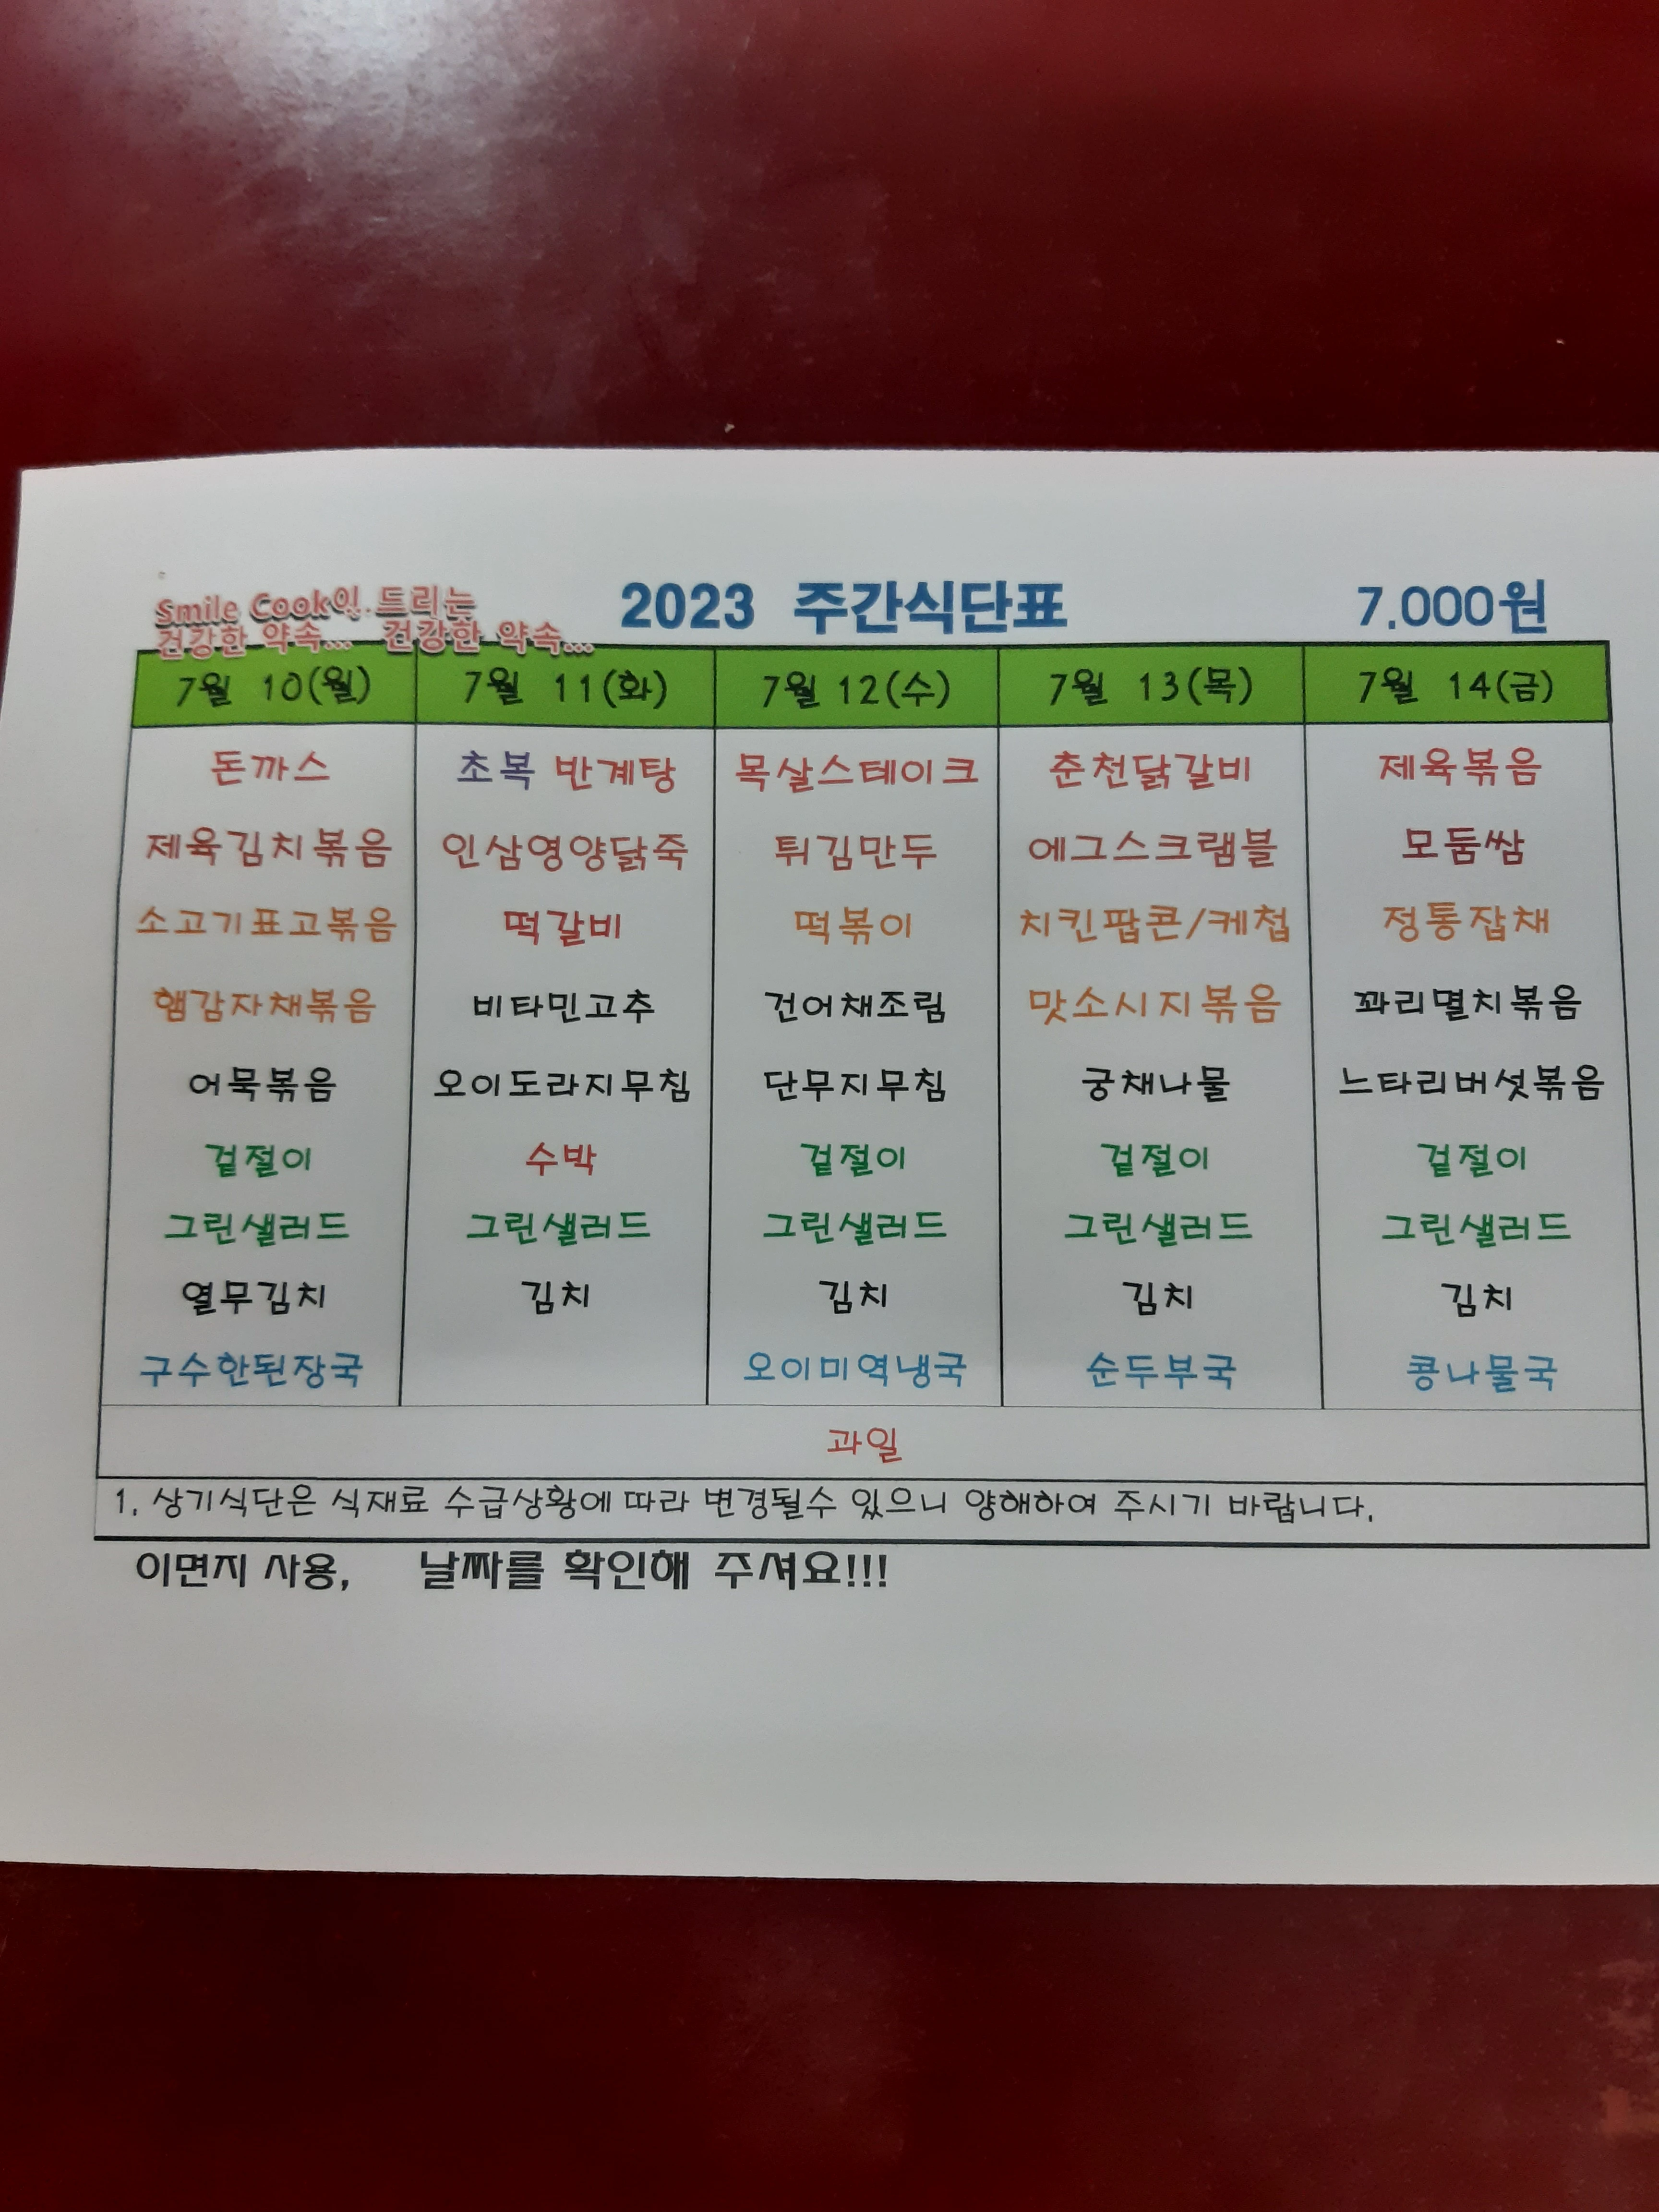 Smile Cook이 드리는
건강한 약속... 건강한 약속...
2023 주간식단표
7,000원
7월 10(월) 7월 11(화) 7월 12(수) 7월 13(목) 7월 14(금)
돈까스 초복 반계탕 목살스테이크 춘천닭갈비 제육볶음
제육김치볶음 인삼영양닭죽 튀김만두 에그스크램블 모둠쌈
소고기표고볶음 떡갈비 떡볶이 치킨팝콘/케첩 정통잡채
햄감자채볶음 비타민고추 건어채조림 맛소시지볶음 꽈리멸치볶음
어묵볶음 오이도라지무침 단무지무침 궁채나물 느타리버섯볶음
겉절이 수박 겉절이 겉절이 겉절이
그린샐러드 그린샐러드 그린샐러드 그린샐러드 그린샐러드
열무김치 김치 김치 김치 김치
구수한된장국 오이미역냉국 순두부국 콩나물국
과일
1. 상기식단은 식재료 수급상황에 따라 변경될수 있으니 양해하여 주시기 바랍니다.
이면지 사용, 날짜를 확인해 주셔요!!!